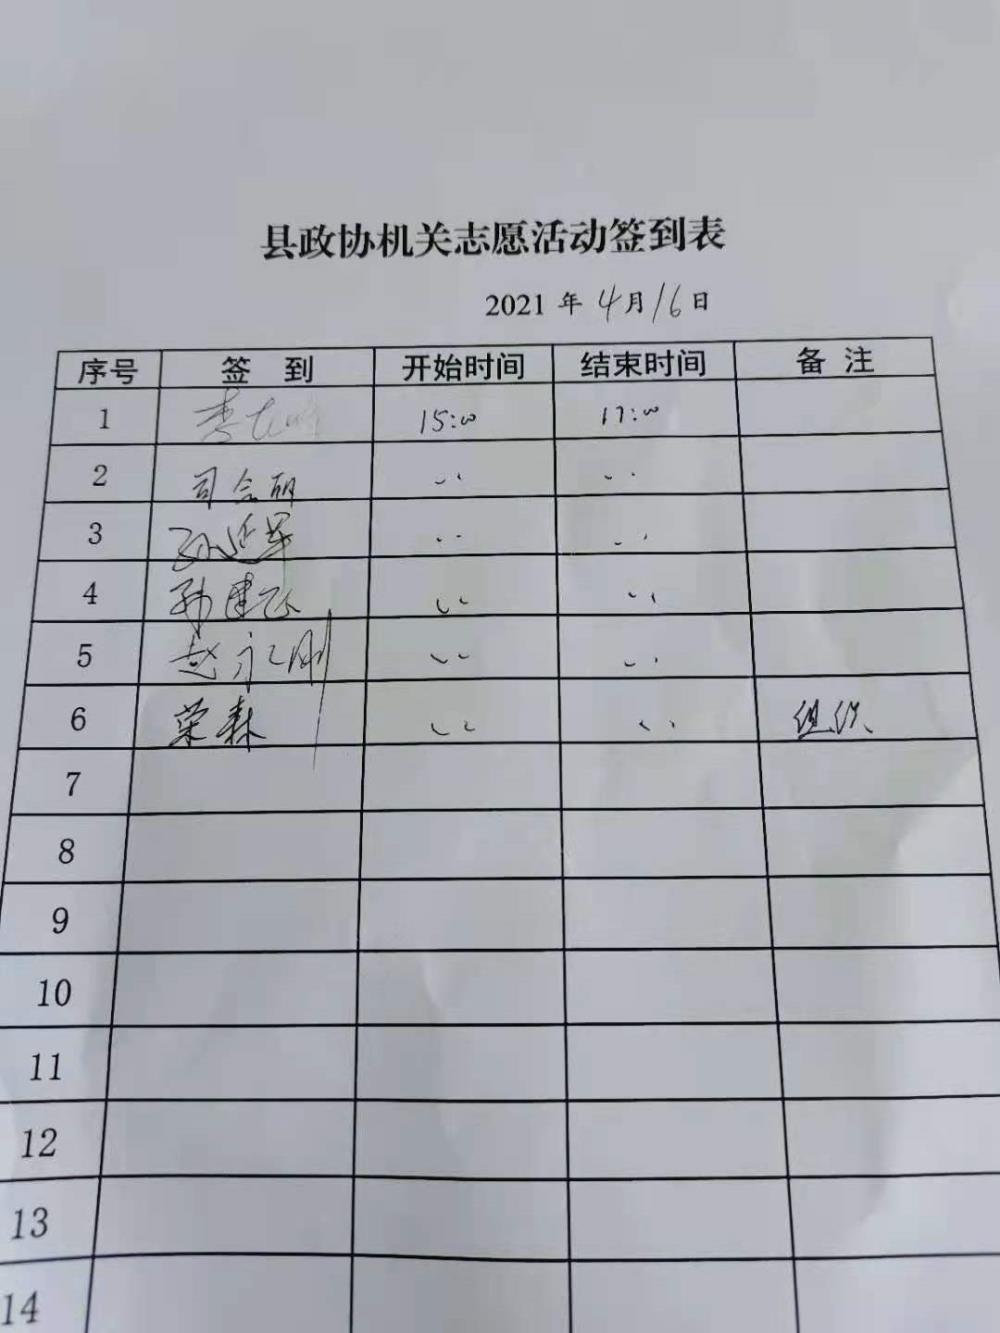 县政协机关志愿活动签到表
2021 年 4月16日
序号 签 到 开始时间 结束时间 备 注
1 李 15:00 17:00
2 司念丽 〃 〃
3 孙延军 〃 〃
4 孙建飞 〃 〃
5 赵永刚 〃 〃
6 荣森 〃 〃 组织
7
8
9
10
11
12
13
14